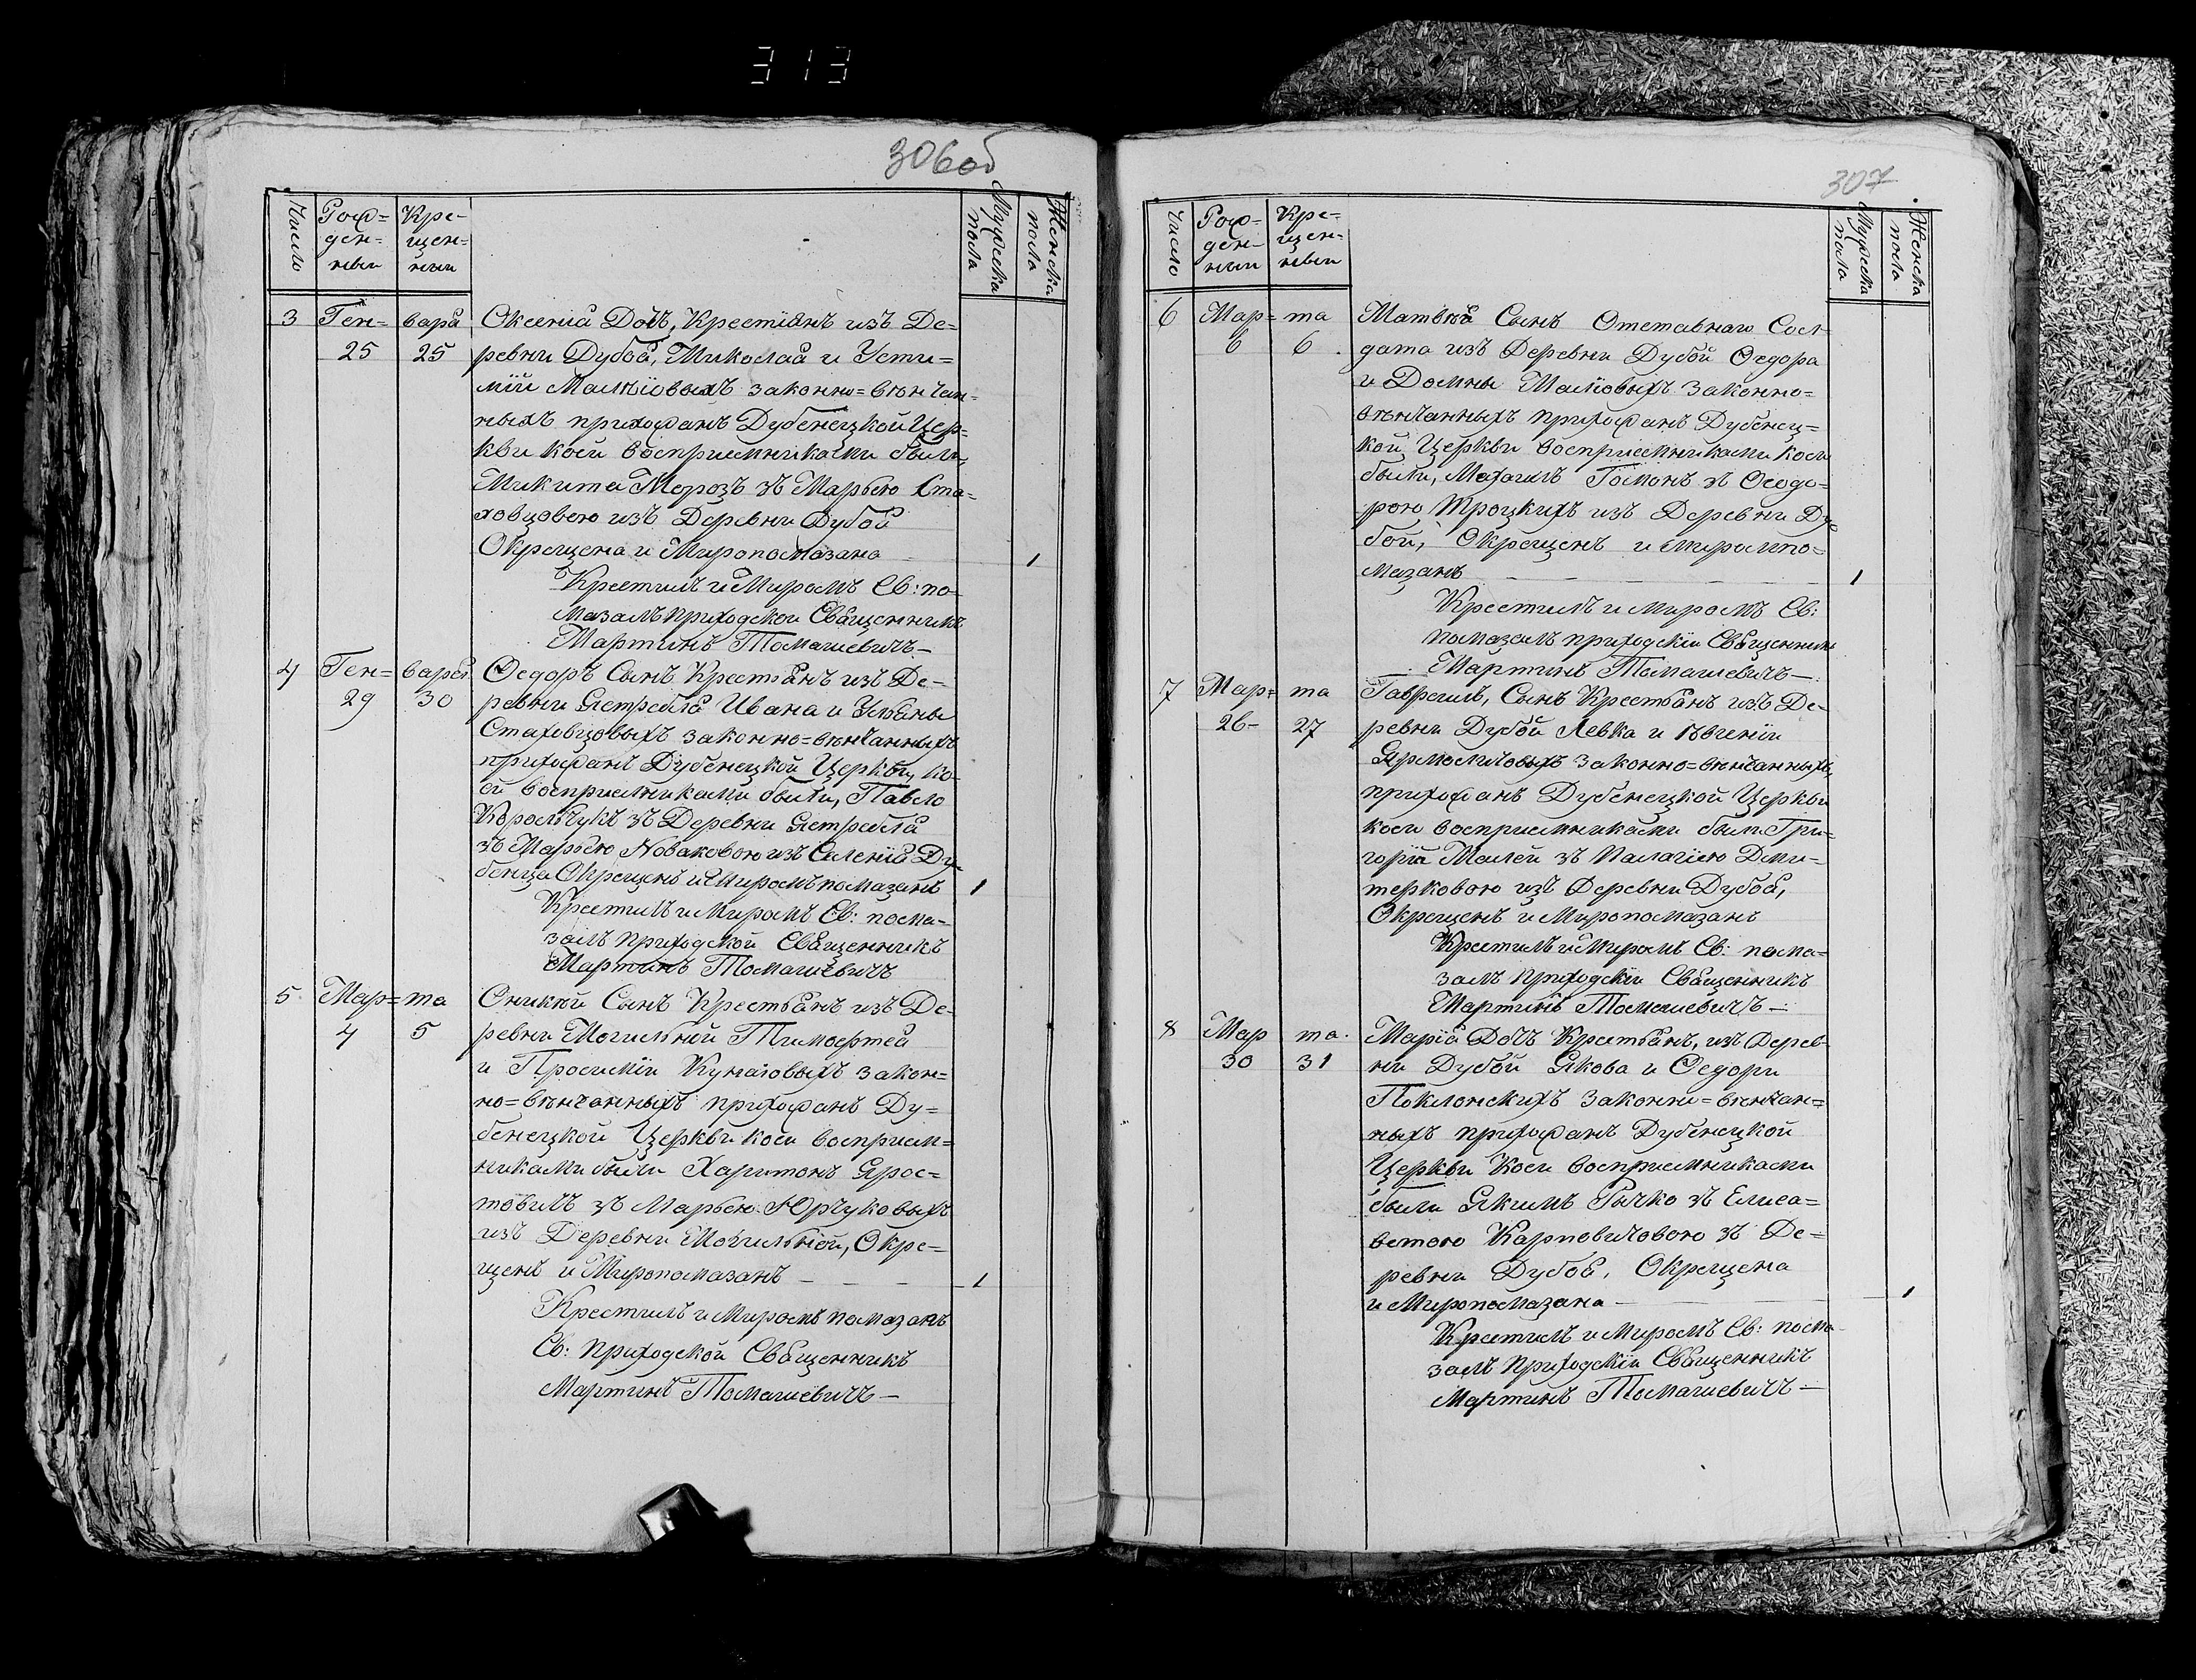 313
306об
Число
Рож=
ден=
ныи
Кре=
щен=
ныи
Мужеска
пола
Женска
пола
3 Ген= варя Оксенія Дочь, Крестіянъ изъ Де=
25 25 ревни Дубой, Миколая и Усти=
міи Малѣіовыхъ законно=вѣнчан=
ныхъ прихожанъ Дубенецкой Цер=
кви коей восприемниками были,
Микита Морозъ зъ Марьею Ста=
ховцовою изъ Деревни Дубой
Окрещена и Миропомазана 1
Крестилъ и Миромъ Св: по=
мазалъ приходской Священникъ
Мартинъ Томашевичъ —
4 Ген= варя Ѳедоръ Сынъ Крестьянъ изъ Де=
29 30 ревни Ястребля Ивана и Ульяны
Стаховцовыхъ законно=вѣнчанныхъ
прихожанъ Дубенецкой Церкви, ко=
ей восприемниками были, Павло
Корольчукъ зъ Деревни Ястребля
зъ Марьею Новаковою изъ Селенія Ду=
бенца Окрещенъ и Миромъ помазанъ 1
Крестилъ и Миромъ Св: пома=
залъ приходской Священникъ
Мартинъ Томашевичъ
5 Мар= та Оникѣй Сынъ Крестьянъ изъ Де=
4 5 ревни Могильной Тимофтея
и Просиміи законн=
но=вѣнчанныхъ прихожанъ Ду=
бенецкой Церкви коей восприем=
никами были Харитонъ
зъ Марьею Юрчуковыхъ
изъ Деревни Могильной, Окре=
щенъ и Миропомазанъ — — — 1
Крестилъ и Миромъ помазанъ
Св: приходской Священникъ
Мартинъ Томашевичъ —
307
Число
Рож=
ден=
ныи
Кре=
щен=
ныи
Мужеска
пола
Женска
пола
6 Мар= та Матвѣй Сынъ Отставнаго Сол=
6 6 дата изъ Деревни Дубой Ѳедора
и Домны Малѣіовыхъ Законно=
вѣнчанныхъ прихожанъ Дубенец=
кой Церкви восприемниками коей
были, Михаилъ Гомонъ зъ Ѳеодо=
рою Троцкихъ изъ Деревни Ду=
бой, Окрещенъ и миромпо=
мазанъ — — — — 1
Крестилъ и миромъ Св:
помазалъ приходскій Священникъ
Мартинъ Томашевичъ —
7 Мар= та Гавріилъ, Сынъ Крестьянъ изъ Де=
26 27 ревни Дубой Левка и Евгеніи
Ярмоличовыхъ законно=вѣнчанныхъ,
прихожанъ Дубенецкой Церкви
коей восприемниками были Гри=
горій Малей зъ Палагіею Дми=
терковою изъ Деревни Дубой,
Окрещенъ и Миропомазанъ
Крестилъ и Миромъ Св: пома=
залъ приходскій Священникъ
Мартинъ Томашевичъ —
8 Мар та Марія Дочь Крестьянъ, изъ Дерев=
30 31 ни Дубой Якова и Ѳедори
Поклонскихъ Законно=вѣнчан=
ныхъ прихожанъ Дубенецкой
Церкви коей восприемниками
были Якимъ Гычко зъ Елиса=
ветою Карповичовою зъ Де=
ревни Дубой, Окрещена
и Миропомазана — 1
Крестилъ и Миромъ Св: пома=
залъ Приходскій Священникъ
Мартинъ Томашевичъ —